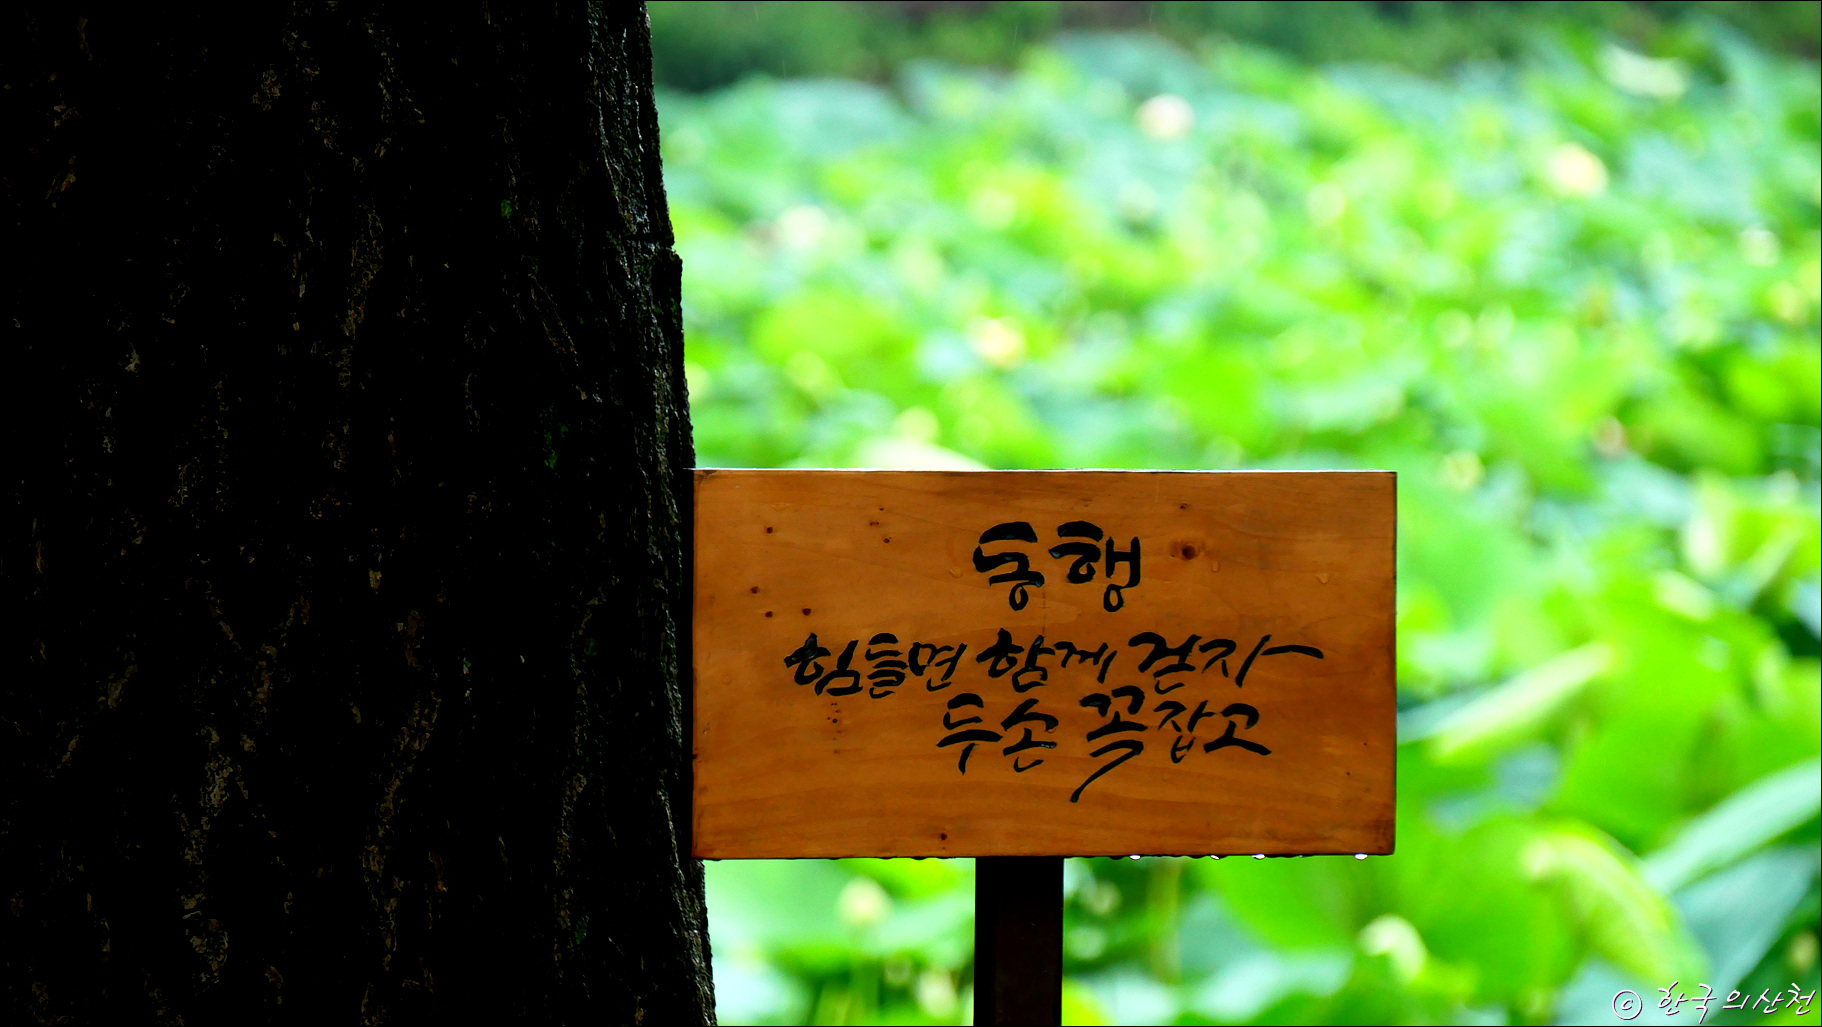 동행
힘들면 함께 걷자
두손 꼭잡고
© 한국의산천